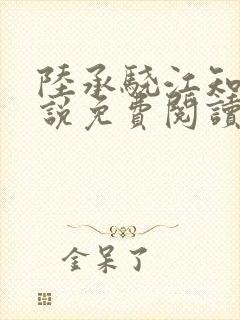 陸承驍江知
說免費閱讀
金呆了